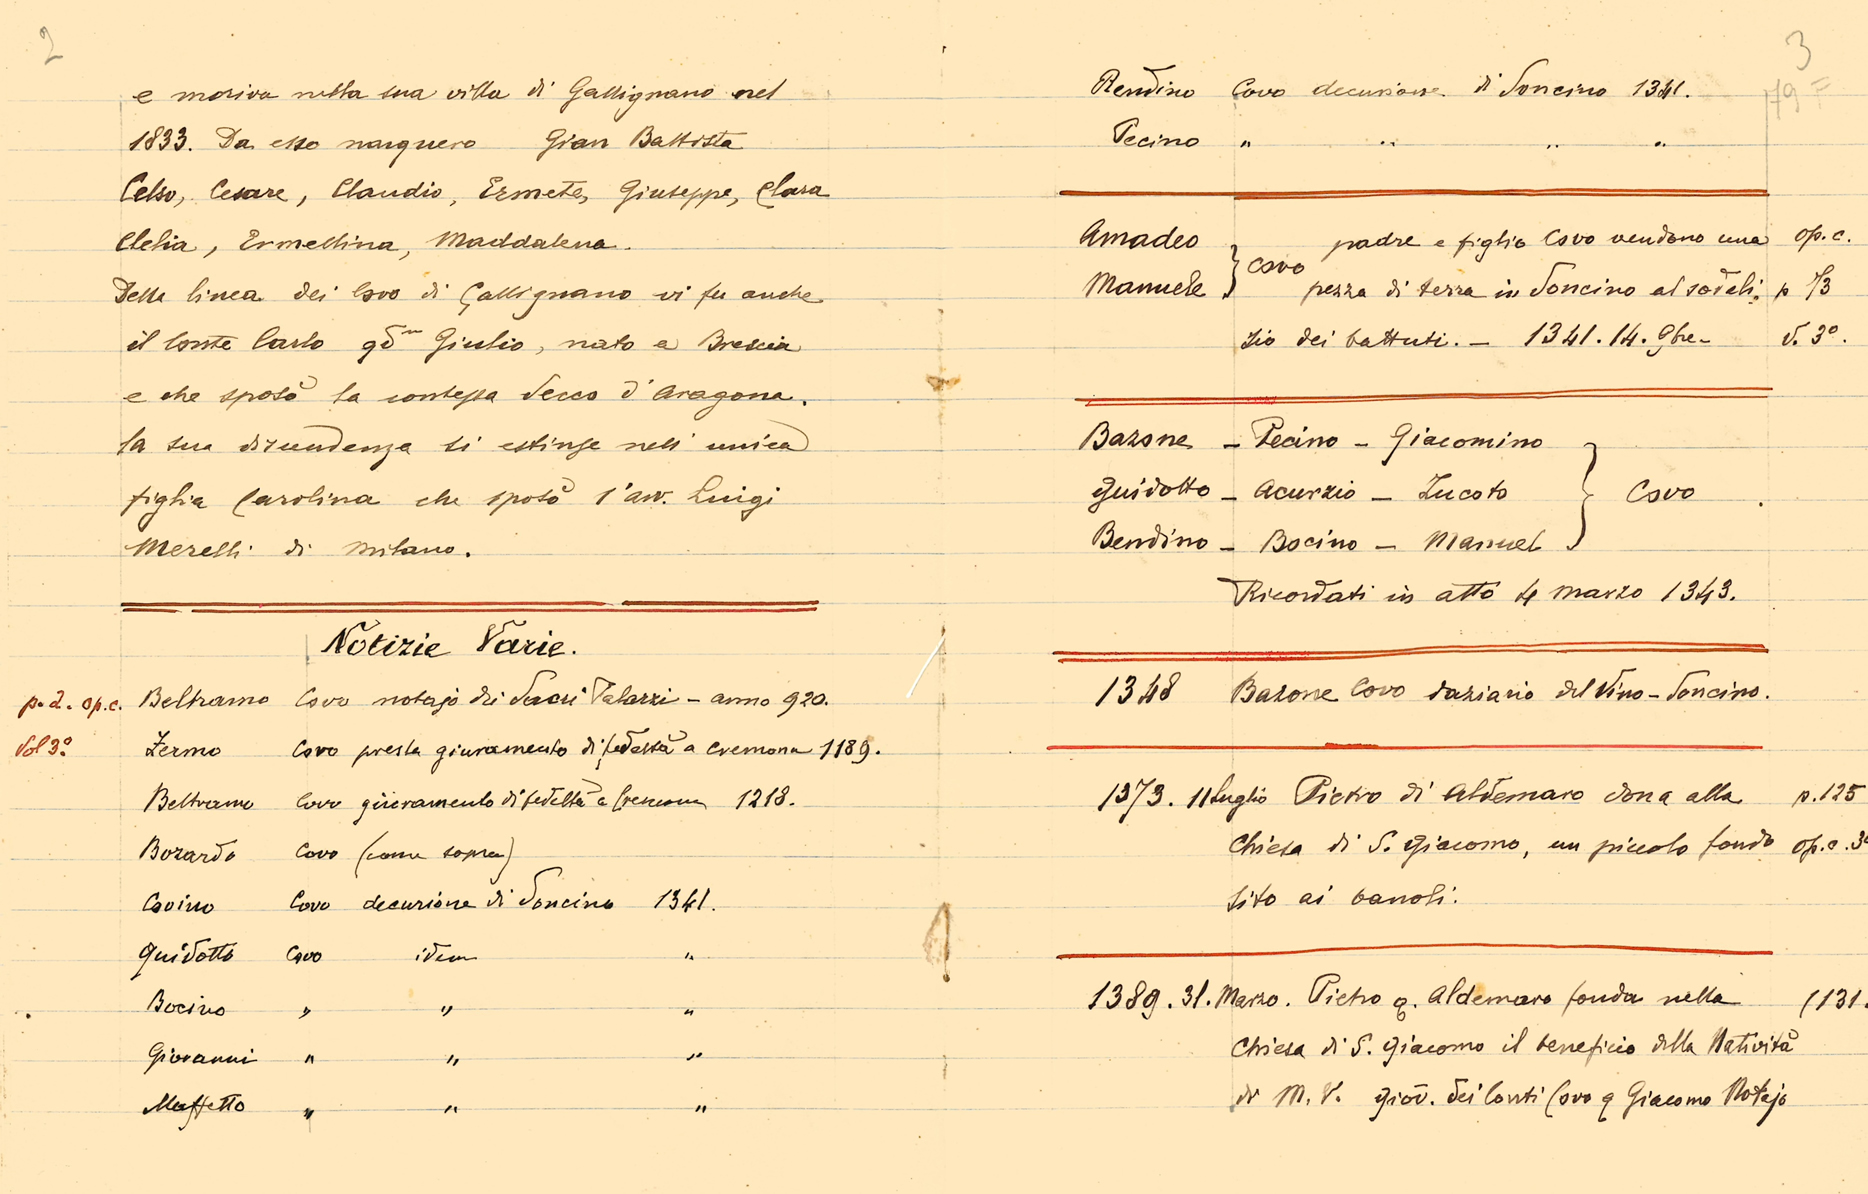 2
e moriva nella sua villa di Gallignano nel
1833. Da esso nacquero Gian Battista
Celso, Cesare, Claudio, Ermete, Giuseppe, Clara
Clelia, Ermellina, Maddalena.
Della linea dei Covo di Gallignano vi fu anche
il Conte Carlo qdm Giulio, nato a Brescia
e che sposò la contessa Secco d'Aragona.
la sua discendenza si estinse nell'unica
figlia Carolina che sposò l'avv. Luigi
Merelli di Milano.
Notizie Varie.
p. 2. op.c. Beltramo Covo notajo dei Sacri Palazzi - anno 920.
Vol 3° Zermo Covo presta giuramento di fedeltà a Cremona 1189.
Beltramo Covo giuramento di fedeltà a Cremona 1218.
Bozardo Covo (come sopra)
Covino Covo decurione di Soncino 1341.
Guidotto Covo idem "
Bocino " " "
Giovanni " " "
Maffetto " " "
3
79
Bendino Covo decurione di Soncino 1341.
Pecino " " " "
Amadeo } Covo padre e figlio Covo vendono una op.c.
Manuele pezza di terra in Soncino al sodali- p 73
zio dei battuti. - 1341. 14. 9bre- v. 3°.
Bazone - Pecino - Giacomino
Guidotto - Acurzio - Zucoto } Covo
Bendino - Bocino - Manuel
Ricordati in atto 4 marzo 1343.
1348 Bazone Covo daziario del Vino - Soncino.
1373. 11 Luglio Pietro di Aldemaro dona alla p. 125
Chiesa di S. Giacomo, un piccolo fondo op.c. 3°
sito ai banoli.
1389. 31. Marzo. Pietro q. Aldemaro fonda nella (131.
Chiesa di S. Giacomo il beneficio della Natività
di M. V. giov. dei Conti Covo q Giacomo Notajo